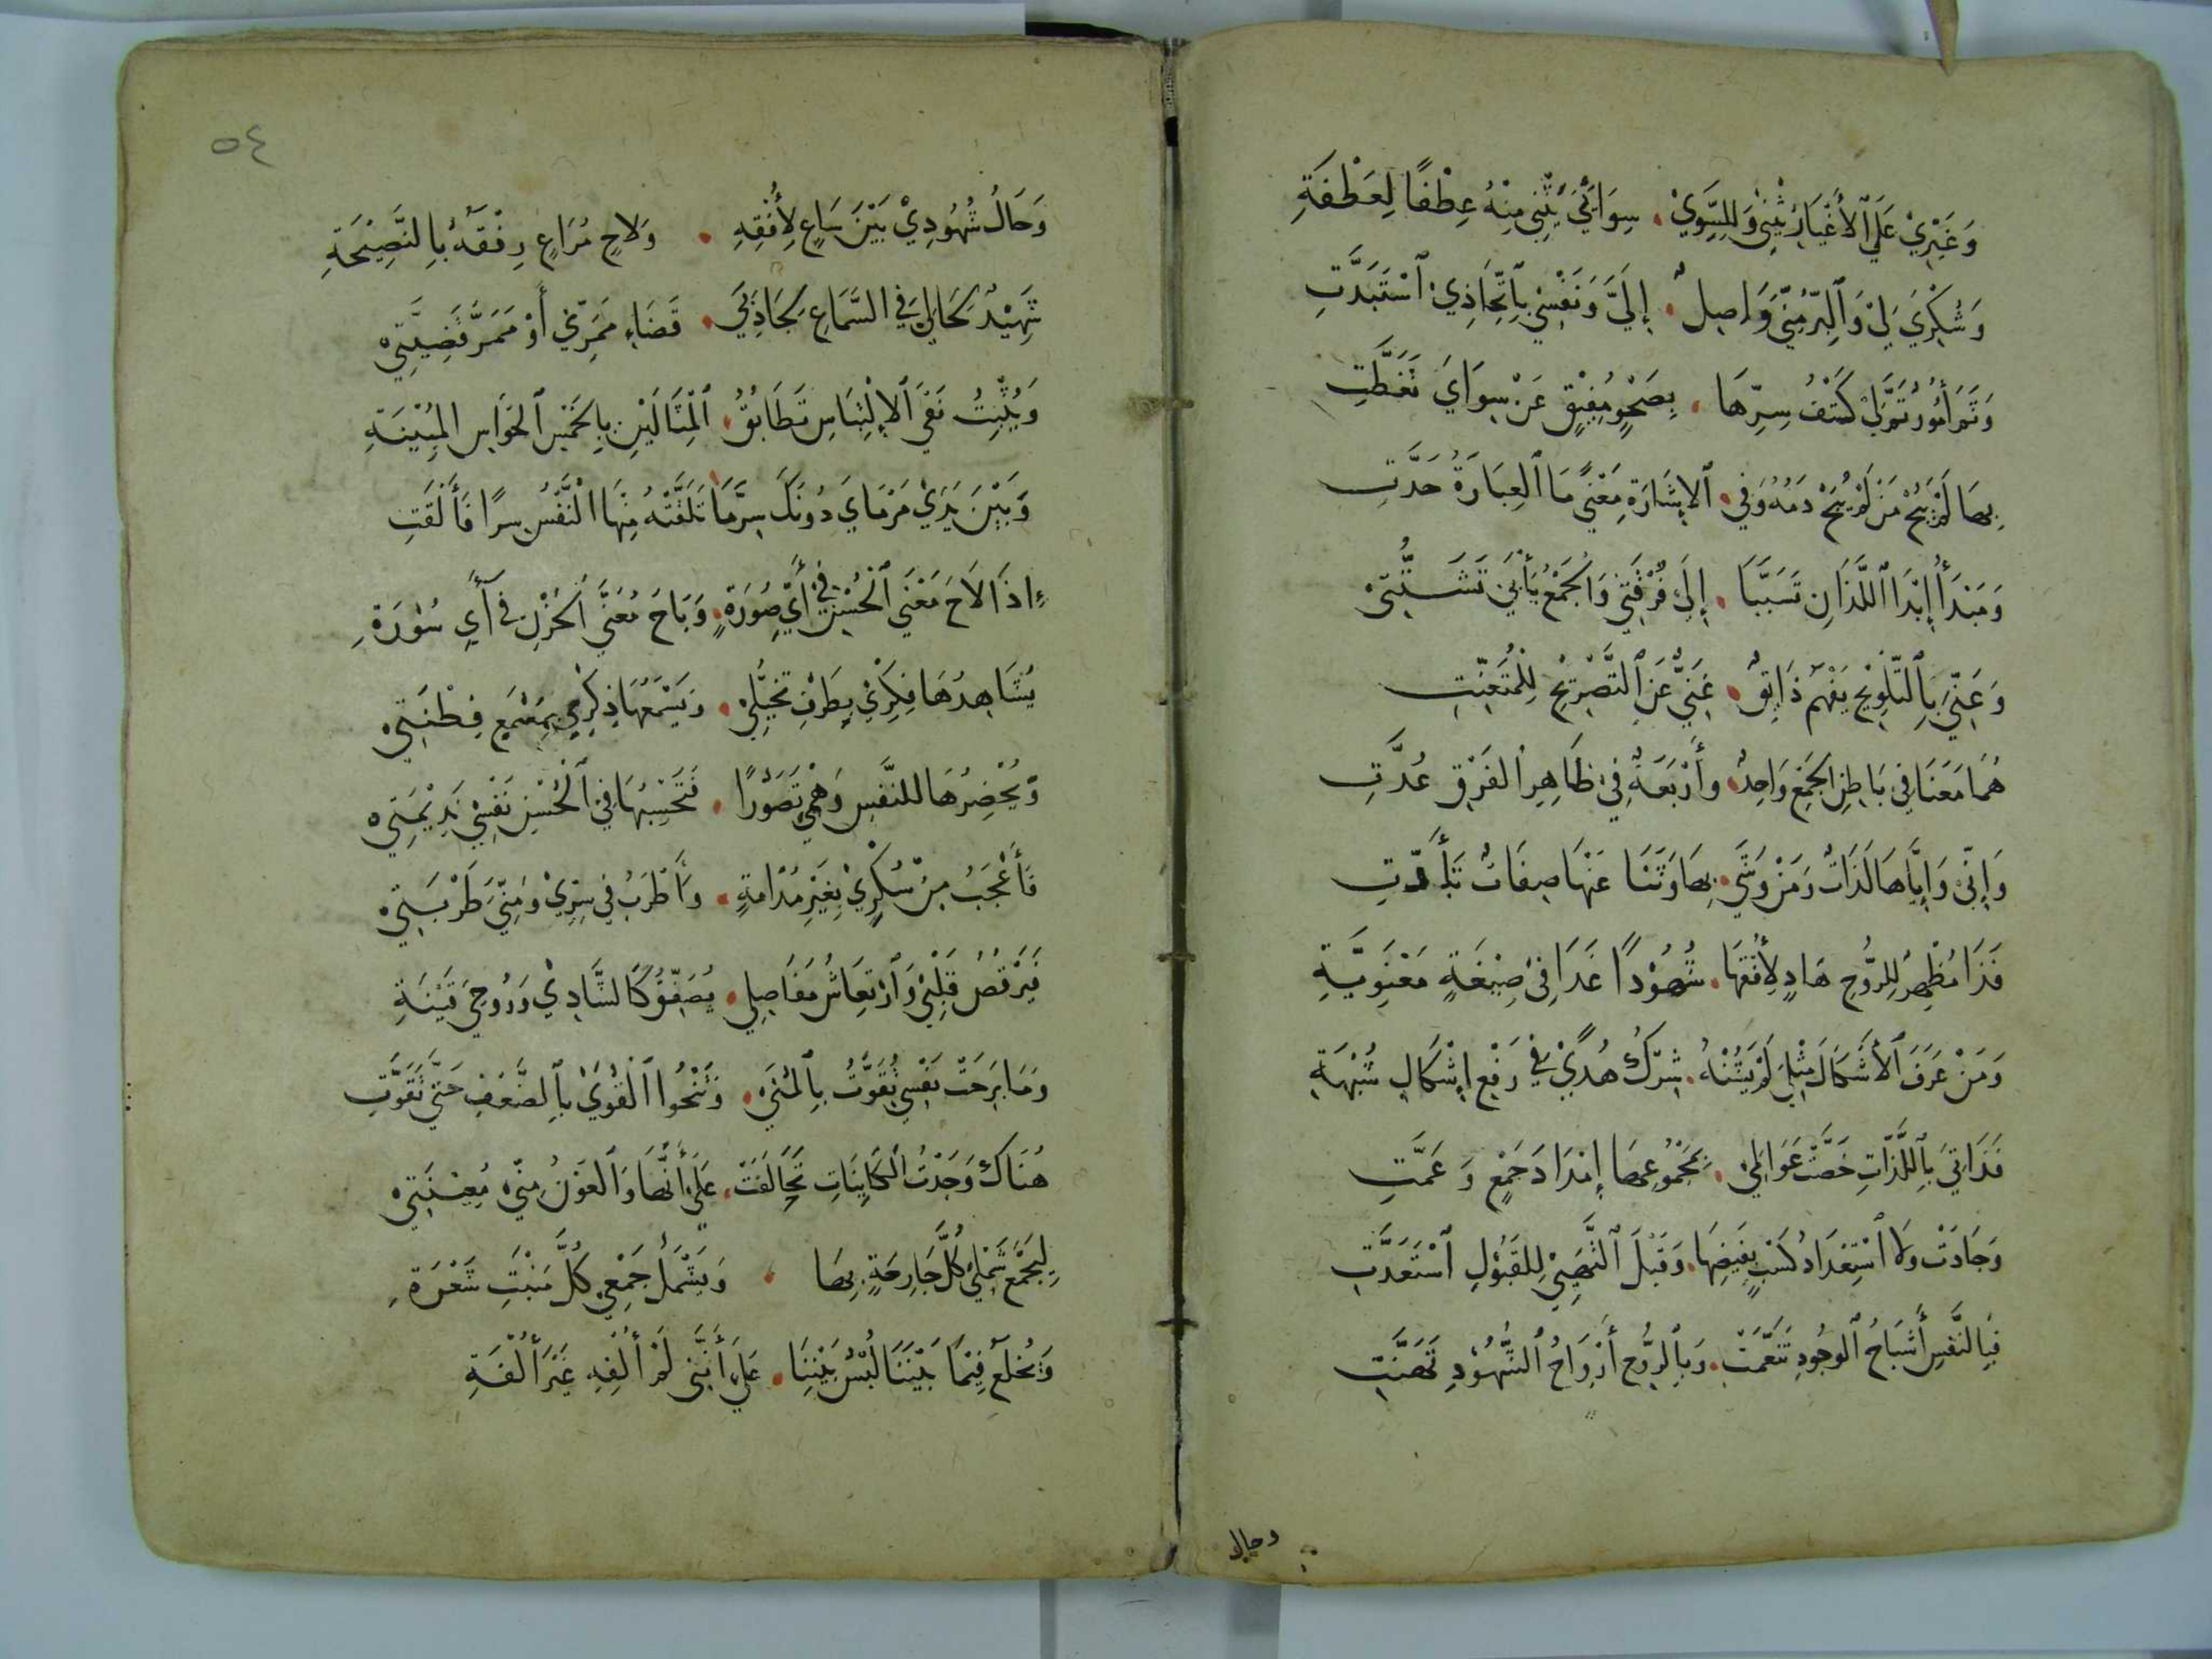 وَغَيْرِيْ عَلَى ٱلأَغْيَارِ يُثْنِي وَلِلسِّوَيْ . سِوَائِيَ يُثْنِي مِنْهُ عِطْفًا لِعَطْفَةِ
وَشُكْرِيَ لِيْ وَٱلْبِرُّ مِنِّيَ وَاصِلٌ . إِلَيَّ وَنَفْسِيْ بِٱتِّحَاذِيْ ٱسْتَبَدَّتِ
وَثَمَّ أُمُوْرٌ تَمَّ لِيْ كَشْفُ سِرِّهَا . بِصَحْوِ مُفِيْقٍ عَنْ سِوَايَ تَغَطَّتِ
بِهَا لَمْ يُبِحْ مَنْ لَمْ يُبِحْ دَمَهُ وَفِي . ٱلإِشَارَةِ مَعْنًى مَا ٱلعِبَارَةُ حَدَّتِ
وَمَبْدَأُ إِبْدَا ٱللَّذَانِ تَسَبَّبَا . إِلَى فُرْقَتِيْ وَالجَمْعُ يَأْبَى تَشَتُّتِيْ
وَعَنِّيَ بِٱلتَّلْوِيْحِ يَفْهَمُ ذَائِقٌ . غَنِيٌّ عَنِ ٱلتَّصْرِيْحِ لِلْمُتَعَنِّتِ
هُمَا مَعَنَا فِي بَاطِنِ الجَمْعِ وَاحِدٌ . وَأَرْبَعَةٌ فِيْ ظَاهِرِ الفَرْقِ عُدَّتِ
وَإِنِّي وَإِيَّاهَا لَذَاتٌ وَمَنْ وَشَى . بِهَا وَثَنَا عَنْهَا صِفَاتٌ تَبَدَّتِ
فَذَا مُظْهِرٌ لِلرُّوْحِ هَادٍ لِأُفْقِهَا . شُهُوْدًا غَدَا فِيْ صِيْغَةٍ مَعْنَوِيَّةِ
وَمَنْ عَرَفَ ٱلأَشْكَالَ مِثْلِيَ لَمْ يَشُبْهُ . شِرْكُ هُدًى فِي رَفْعِ إِشْكَالِ شُبْهَةِ
فَذَاتِيَ بِٱللَّذَّاتِ خَصَّتْ عَوَالِمِيْ . بِمَجْمُوْعِهَا إِمْدَادَ جَمْعٍ وَ عَمَّتِ
وَجَادَتْ وَلَا ٱسْتِعْدَادُ كَسْبٍ بِفَيْضِهَا . وَقَبْلَ ٱلتَّهَيِّيْ لِلقَبُوْلِ ٱسْتَعَدَّتِ
فَبِالنَّفْسِ أَشْبَاحُ ٱلوُجُودِ تَنَعَّمَتْ . وَبِٱلرُّوحِ أَرْوَاحُ ٱلشُّهُوْدِ تَهَنَّتِ
وحال
٥٤
وَحَالُ شُهُوْدِيْ بَيْنَ سَاعٍ لِأُفْقِهِ . وَلَاحٍ مُرَاعٍ رِفْقَهُ بِالنَّصِيْحَةِ
شَهِيْدٌ بِحَالِيْ فِي السَّمَاعِ بِجَاذِبِيْ . قَضَاءِ مَمَرِّيْ أَوْ مَمَرَّ قَضِيَّتِيْ
وَيُثْبِتُ نَفْيَ ٱلإِلْتِبَاسِ تَطَابُقُ . ٱلْمِثَالَيْنِ بِالخَمْسِ ٱلحَوَاسِ المُبِيْنَةِ
وَبَيْنَ يَدَيْ مَرْمَايَ دُونَكَ سِرَّ مَا تَلَقَّتْهُ مِنْهَا النَّفْسُ سِرًّا فَأَلْقَتِ
إِذَا لَاحَ مَعْنَى ٱلْحُسْنِ فِي أَيِّ صُوْرَةٍ . وَبَاحَ مُعَنَّى الحُزْنِ فِي آيِ سُوْرَةِ
يُشَاهِدُهَا فِكْرِيْ بِطَرْفِ تَخَيُّلِيْ . وَيَسْمَعُهَا ذِكْرِيْ بِمَسْمَعِ فِطْنَتِيْ
وَيُحْضِرُهَا لِلنَّفْسِ وَهْمِيْ تَصَوُّرًا . فَتَحْسِبُهَا فِيْ ٱلْحُسْنِ نَفْسِيْ نَدِيْمَتِيْ
فَأَعْجَبُ مِنْ سُكْرِيْ بِغَيْرِ مُدَامَةٍ . وَأَطْرَبُ فِي سِرِّيْ وَمِنِّيَ طَرْبَتِيْ
فَيَرْقُصُ قَلْبِيْ وَٱرْتِعَاشُ مَفَاصِلِي . يُصَفِّقُ كَالشَّادِيْ وَرُوحِيَ قَيْنَةِ
وَمَا بَرِحَتْ نَفْسِيْ تُقَوَّتُ بِٱلْمُنَى . وَتَمْحُوا ٱلْقُوَيْ بِٱلضَّعْفِ حَتَّى تَقَوَّتِ
هُنَاكَ وَجَدْتُ الكَائِنَاتِ تَحَالَفَتْ . عَلَى أَنَّهَا وَٱلعَوْنُ مِنِّيْ مُعِيْنَتِيْ
لِيَجْمَعَ شَمْلِيْ كُلُّ جَارِحَةٍ بِهَا . وَيَشْمَلُ جَمْعِيْ كُلَّ مَنْبَتِ شَعْرَةِ
وَيُخْلَعَ فِيْمَا بَيْنَنَا لُبْسُ بَيْنِنَا . عَلَى أَنَّنِي لَمْ أُلْفِهِ غَيْرَ أُلْفَةِ